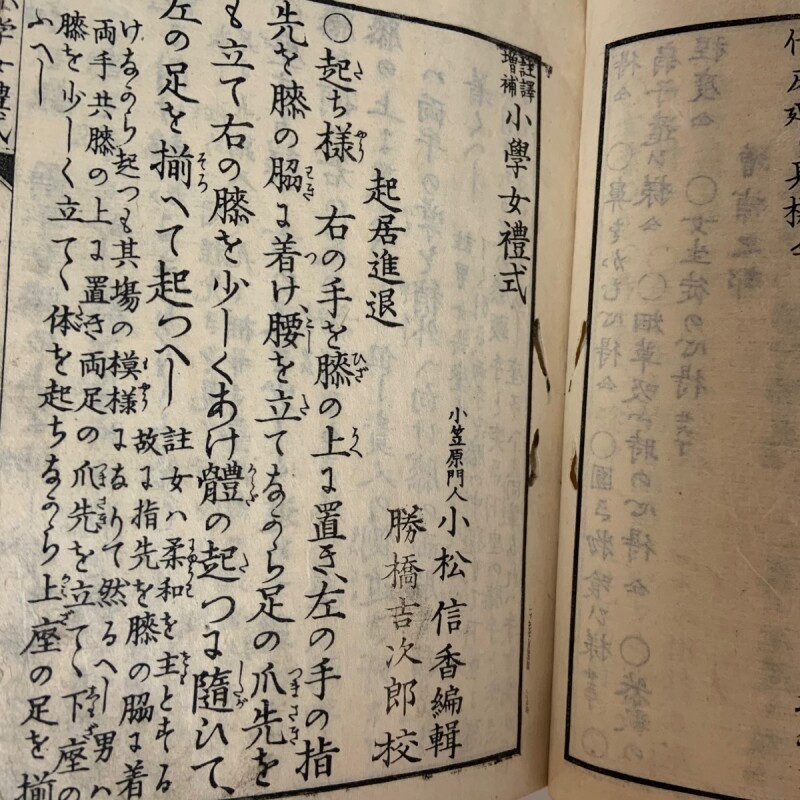 註譯増補 小學女禮式
小笠原門人 小松信香編輯
勝橋吉次郎校
起居進退
〇起ち様 右の手を膝の上に置き、左の手の指
先を膝の脇に着け、腰を立てながら足の爪先を
も立て右の膝を少しくあけ體の起つに隨ひて、
左の足を揃へて起つへし 註女ハ柔和を主とする
故に指先を膝の脇に着
けながら起つも其塲の模様によりて然るへし男ハ
両手共膝の上に置き両足の爪先を立てゝ下座の
膝を少しく立てゝ体を起ちながら上座の足を揃
ふへし
学女禮式